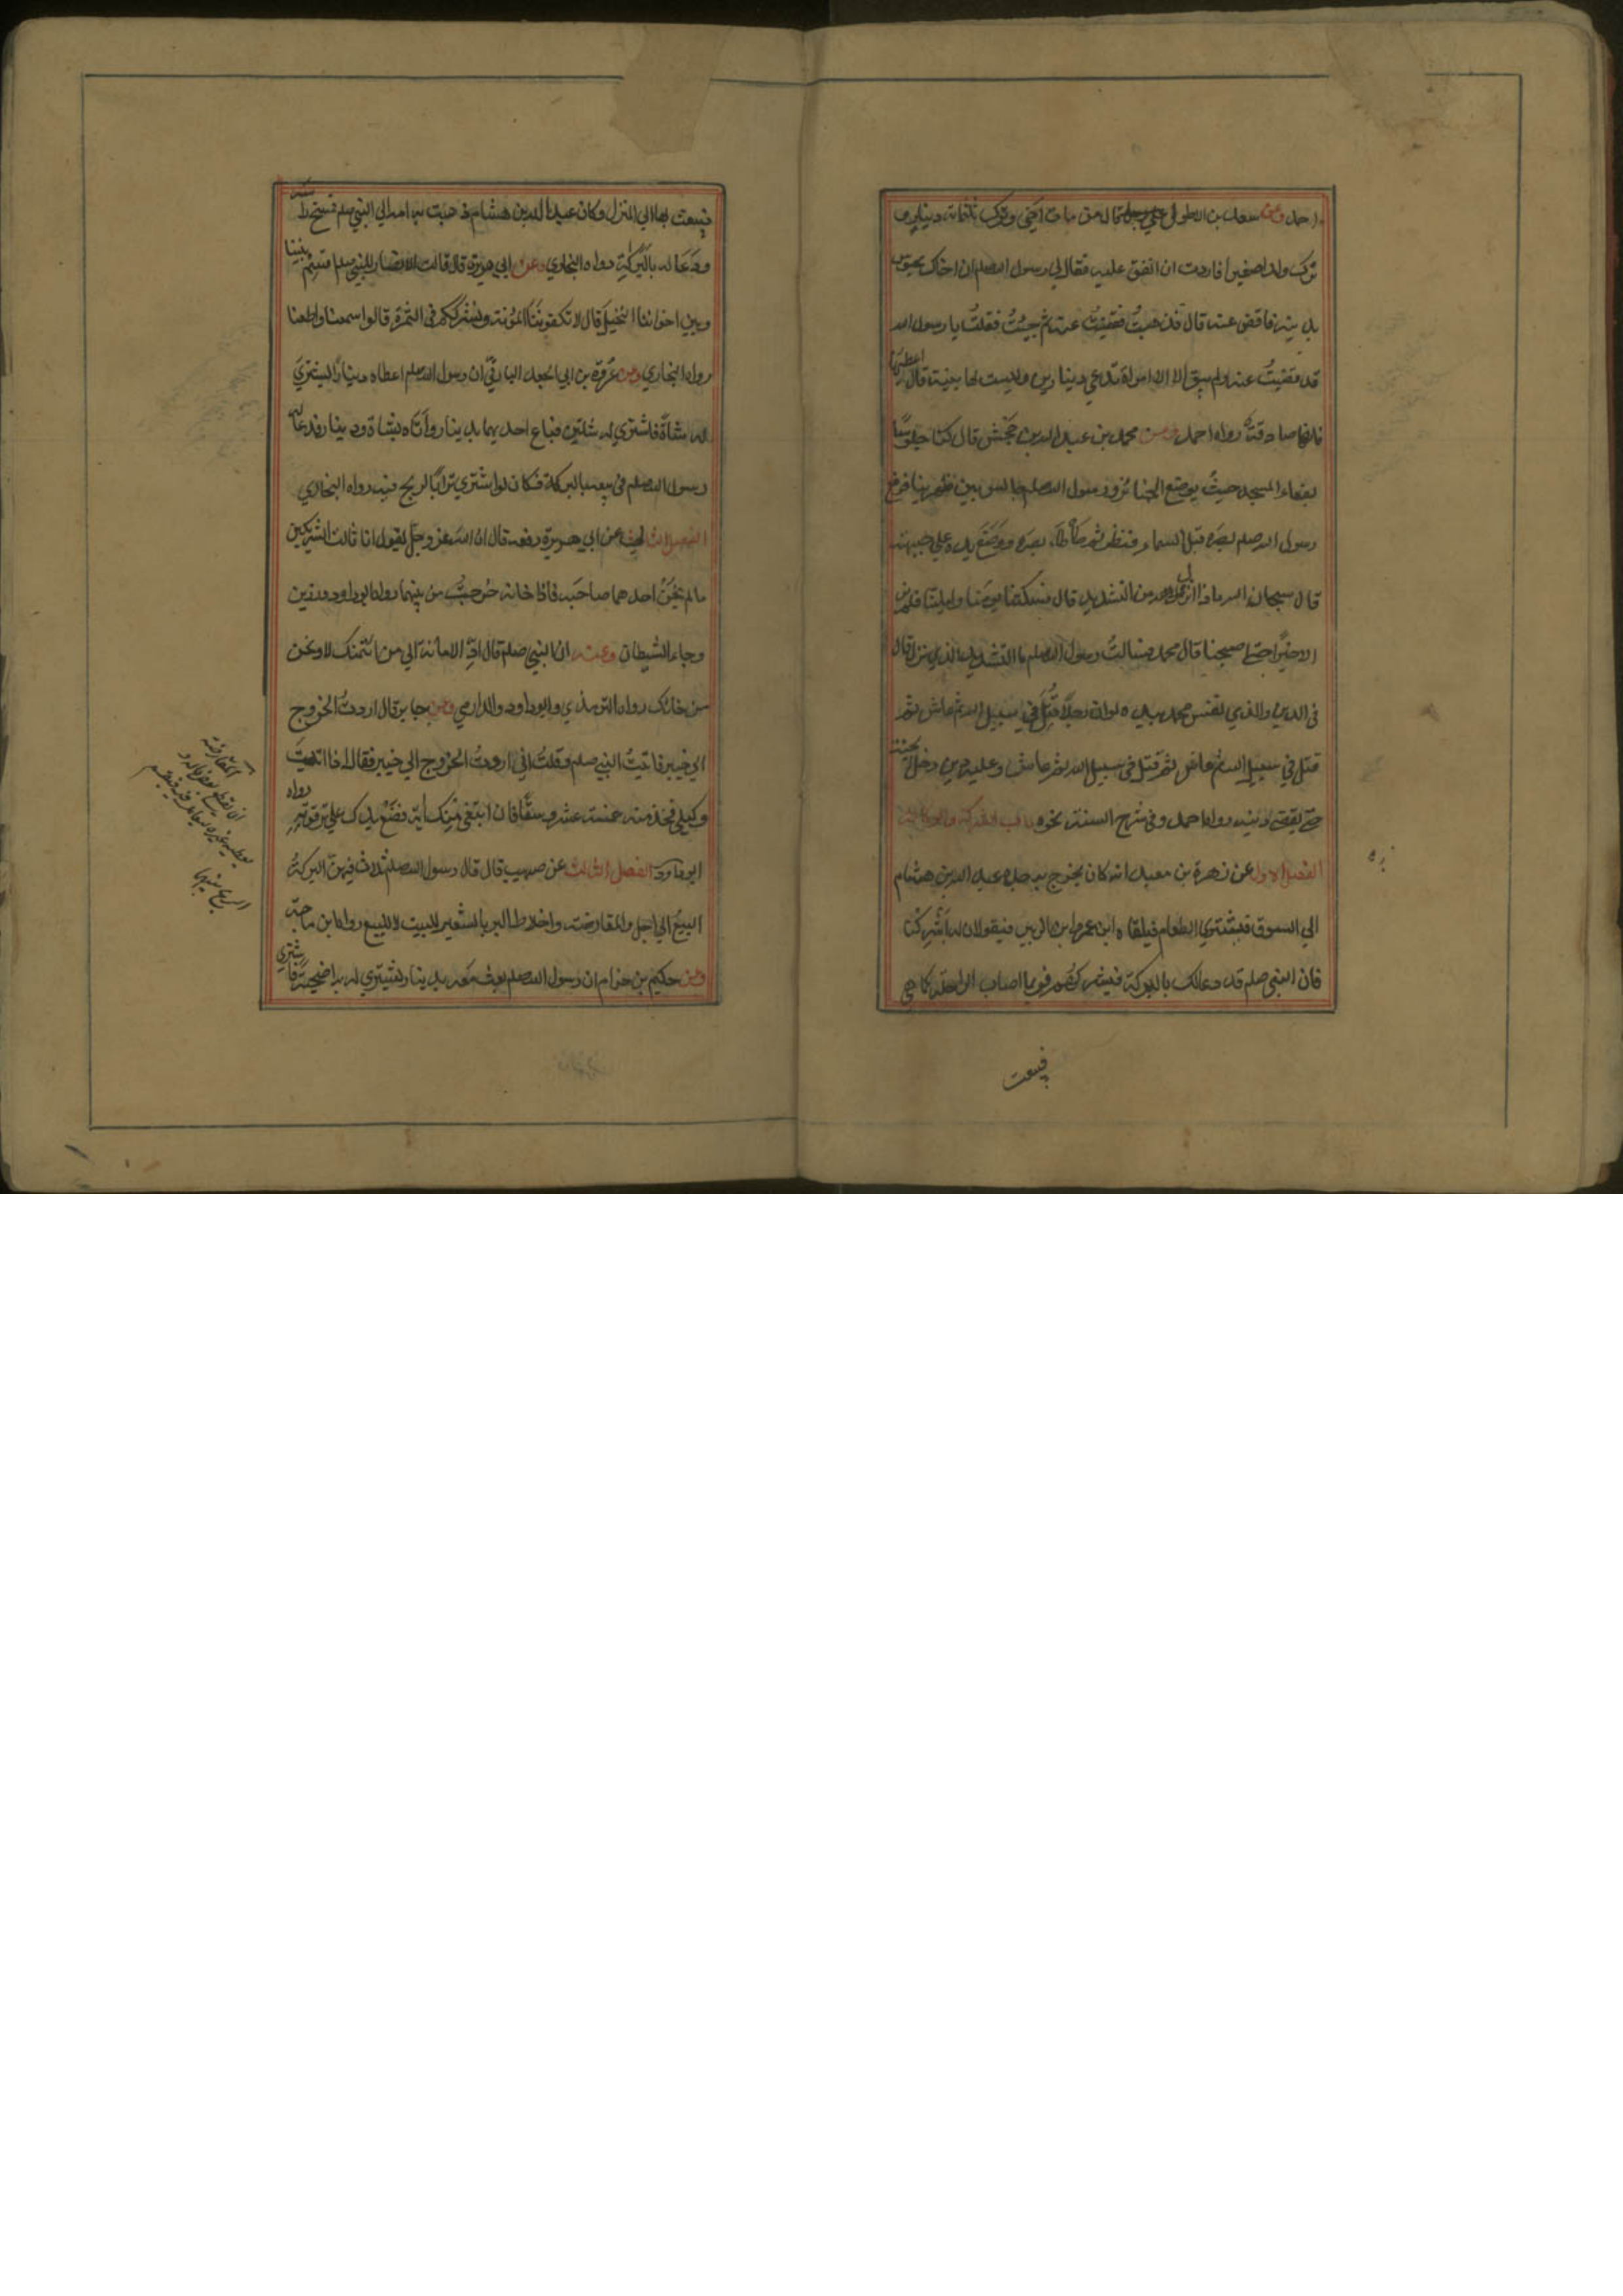 احمد وعن سعد بن الاطول قال مات اخي وترك ثلثمائة دينار و
ترك ولدا صغيرا فاردت ان انفق عليه فقال لي رسول الله صلعم ان اخاك محبوس
بدينه فاقض عنه قال فذهبتُ فقضيتُ عنه ثم جئتُ فقلتُ يا رسول الله
قد قضيتُ عنه ولم يبق الا امراة تدعي دينارين وليست لها بينة قال اعطها
فانها صادقة رواه احمد وعن محمد بن عبد الله بن جحش قال كنا جلوسًا
بفناء المسجد حيث يوضع الجنائز ورسول الله صلعم جالس بين ظهرينا فرفع
رسول الله صلعم بصره قبل السماء فنظر ثم طأطأ بصره ووضع يده علي جبهته
قال سبحان الله ماذا نزل من التشديد قال فسكتنا يومنا وليلتنا فلم نر
الا خيرًا حتي اصبحنا قال محمد فسالتُ رسول الله صلعم ما التشديد الذي نزل قال
في الدين والذي نفس محمد بيده لو ان رجلًا قُتِلَ في سبيل الله ثم عاش ثم
قتل في سبيل الله ثم عاش ثم قتل في سبيل الله ثم عاش وعليه دين ما دخل الجنة
حتي يقضي دينه رواه احمد وفي شرح السنة نحوه باب الشركة والوكالة
الفصل الاول عن زهرة بن معبد انه كان يخرج به جده عبد الله بن هشام
الي السوق فيشتري الطعام فيلقاه ابن عمر وابن الزبير فيقولان له اَشْرِكنا
فان النبي صلعم قد دعا لك بالبركة فيشركهم فربما اصاب الراحلة كما هي
فيبعث
فيبعث بها الي المنزل وكان عبد الله بن هشام ذهبت به امه الي النبي صلعم فمسح راسه
ودعا له بالبركة رواه البخاري وعن ابي هريرة قال قالت الانصار للنبي صلعم اقسم بيننا
وبين اخواننا النخيل قال لا تكفوننا المؤنة ونشرككم في الثمرة قالوا سمعنا واطعنا
رواه البخاري وعن عروة بن ابي الجعد البارقي ان رسول الله صلعم اعطاه دينارًا ليشتري
له شاة فاشتري له شاتين فباع احديهما بدينار وأتاه بشاة ودينار فدعا له
رسول الله صلعم في بيعه بالبركة فكان لو اشتري ترابًا لربح فيه رواه البخاري
الفصل الثاني عن ابي هريرة رفعه قال ان الله عز وجل يقول انا ثالث الشريكين
ما لم يخن احدهما صاحبه فاذا خانه خرجتُ من بينهما رواه ابو داود ورزين
وجاء الشيطان وعنه ان النبي صلعم قال ادّ الامانة الي من ائتمنك لا وتخن
من خانك رواه الترمذي وابو داود والدارمي وعن جابر قال اردتُ الخروج
الي خيبر فاتيتُ النبي صلعم وقلتُ اني اردتُ الخروج الي خيبر فقال اذا اتيتَ
وكيلي فخذ منه خمسة عشر وسقًا فان ابتغي منك آية فضَعْ يدك علي ترقوته رواه
ابو داود الفصل الثالث عن صهيب قال قال رسول الله صلعم ثلاث فيهن البركة
البيع الي اجل والمقارضة واخلاط البر بالشعير للبيت لا للبيع رواه ابن ماجه
وعن حكيم بن حزام ان رسول الله صلعم بعث معه بدينار ليشتري له به اضحية فاشتري
المقارضة